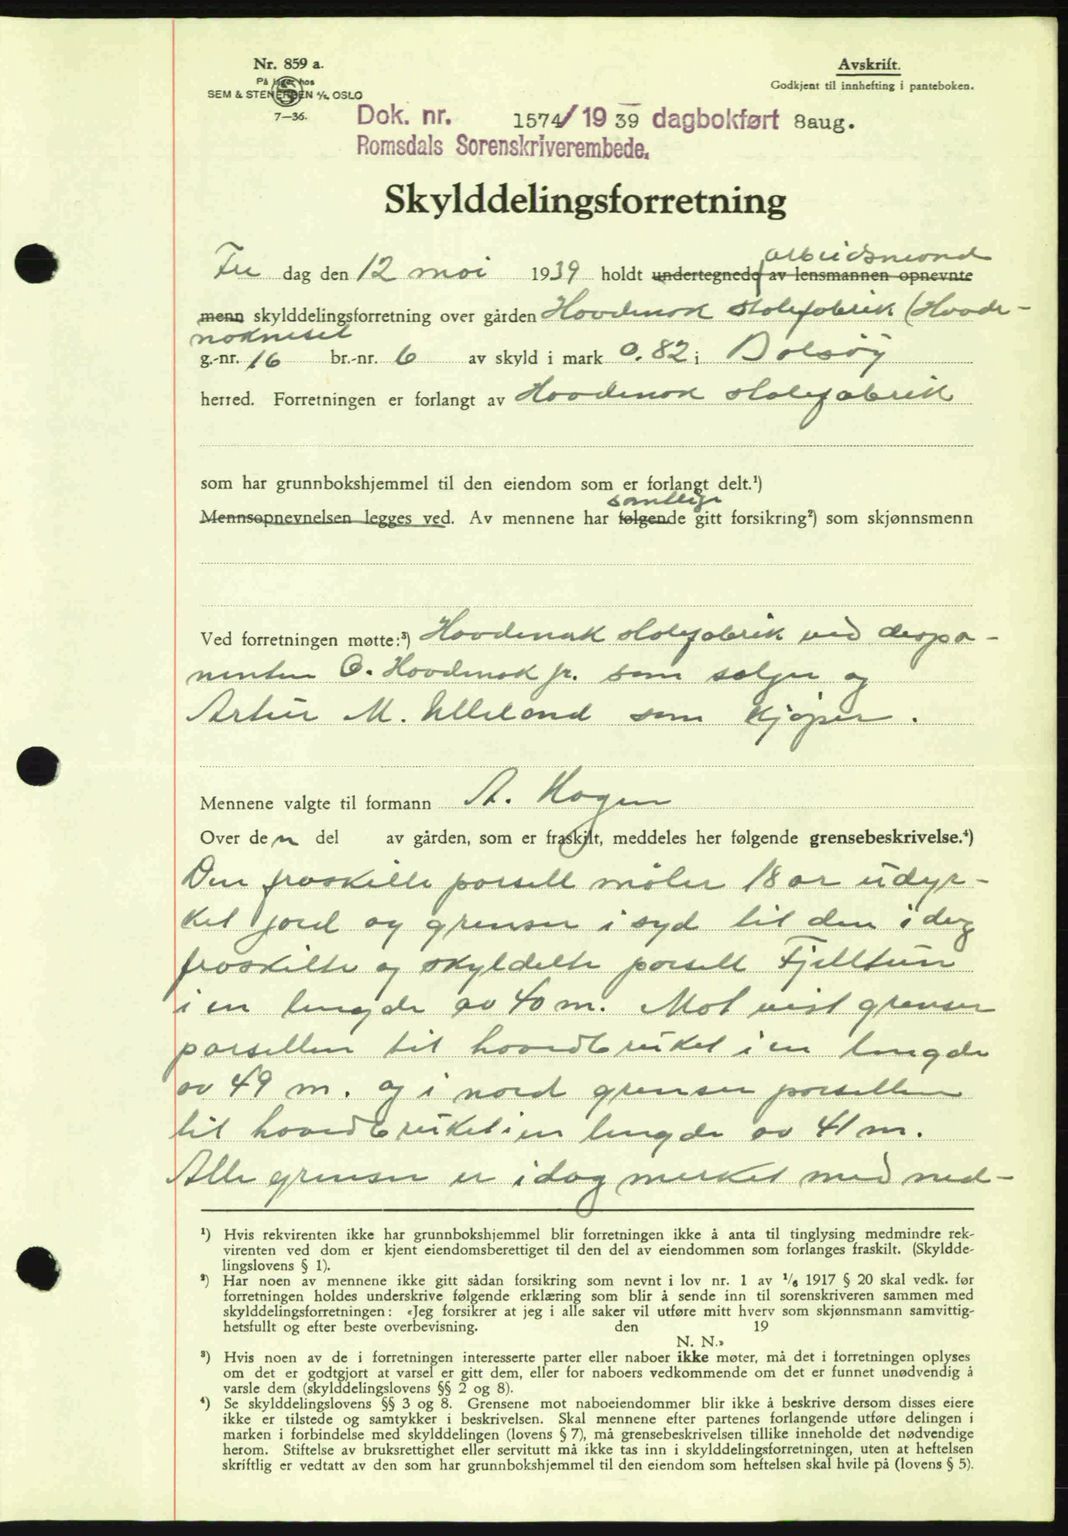 Nr. 859 a.
På lager hos
SEM & STENERSEN A/S, OSLO
7—36.
Avskrift.
Godkjent til innhefting i panteboken.
Dok. nr. 1574/1939 dagbokført 8aug.
Romsdals Sorenskriverembede.
Skylddelingsforretning
Fre dag den 12 mai 1939 holdt undertegnede av lensmannen opnevnte
arbeidsmend
menn skylddelingsforretning over gården Hovdenak Stolefabrik (Hovde-
nakneset
g.-nr. 16 br.-nr. 6 av skyld i mark 0.82 i Bolsøy
herred. Forretningen er forlangt av Hovdenak Stolefabrik
som har grunnbokshjemmel til den eiendom som er forlangt delt.¹)
samtlige
Mennsopnevnelsen legges ved. Av mennene har følgende gitt forsikring²) som skjønnsmenn
Ved forretningen møtte:³) Hovdenak Stolefabrik ved dispo-
nenten O. Hovdenak jr. som selger og
Artur M. Ulleland som kjøper.
Mennene valgte til formann A. Hagen
Over den del av gården, som er fraskilt, meddeles her følgende grensebeskrivelse.⁴)
Den fraskilte parsell måler 18 ar udyr-
ket jord og grenser i syd til den i dag
fraskilte og skyldelte parsell Fjelltun
i en lengde av 40 m. Mot vest grenser
parsellen til hovedbruket i en lengde
av 49 m. og i nord grenser parsellen
til hovedbruket i en lengde av 41 m.
Alle grenser er idag merket med ned-
¹) Hvis rekvirenten ikke har grunnbokshjemmel blir forretningen ikke å anta til tinglysing medmindre rek-
virenten ved dom er kjent eiendomsberettiget til den del av eiendommen som forlanges fraskilt. (Skyldde-
lingslovens § 1).
²) Har noen av mennene ikke gitt sådan forsikring som nevnt i lov nr. 1 av 1/6 1917 § 20 skal vedk. før
forretningen holdes underskrive følgende erklæring som blir å sende inn til sorenskriveren sammen med
skylddelingsforretningen: «Jeg forsikrer at jeg i alle saker vil utføre mitt hverv som skjønnsmann samvittig-
hetsfullt og efter beste overbevisning. den 19
N. N.»
³) Hvis noen av de i forretningen interesserte parter eller naboer ikke møter, må det i forretningen oplyses
om det er godtgjort at varsel er gitt dem, eller for naboers vedkommende om det er funnet unødvendig å
varsle dem (skylddelingslovens §§ 2 og 8).
⁴) Se skylddelingslovens §§ 3 og 8. Grensene mot naboeiendommer blir ikke å beskrive dersom disses eiere
ikke er tilstede og samtykker i beskrivelsen. Skal mennene efter partenes forlangende utføre delingen i
marken i forbindelse med skylddelingen (lovens § 7), må grensebeskrivelsen tillike inneholde det nødvendige
herom. Stiftelse av bruksrettighet eller servitutt må ikke tas inn i skylddelingsforretningen, uten at heftelsen
skriftlig er vedtatt av den som har grunnbokshjemmel til den eiendom som heftelsen skal hvile på (lovens § 5).